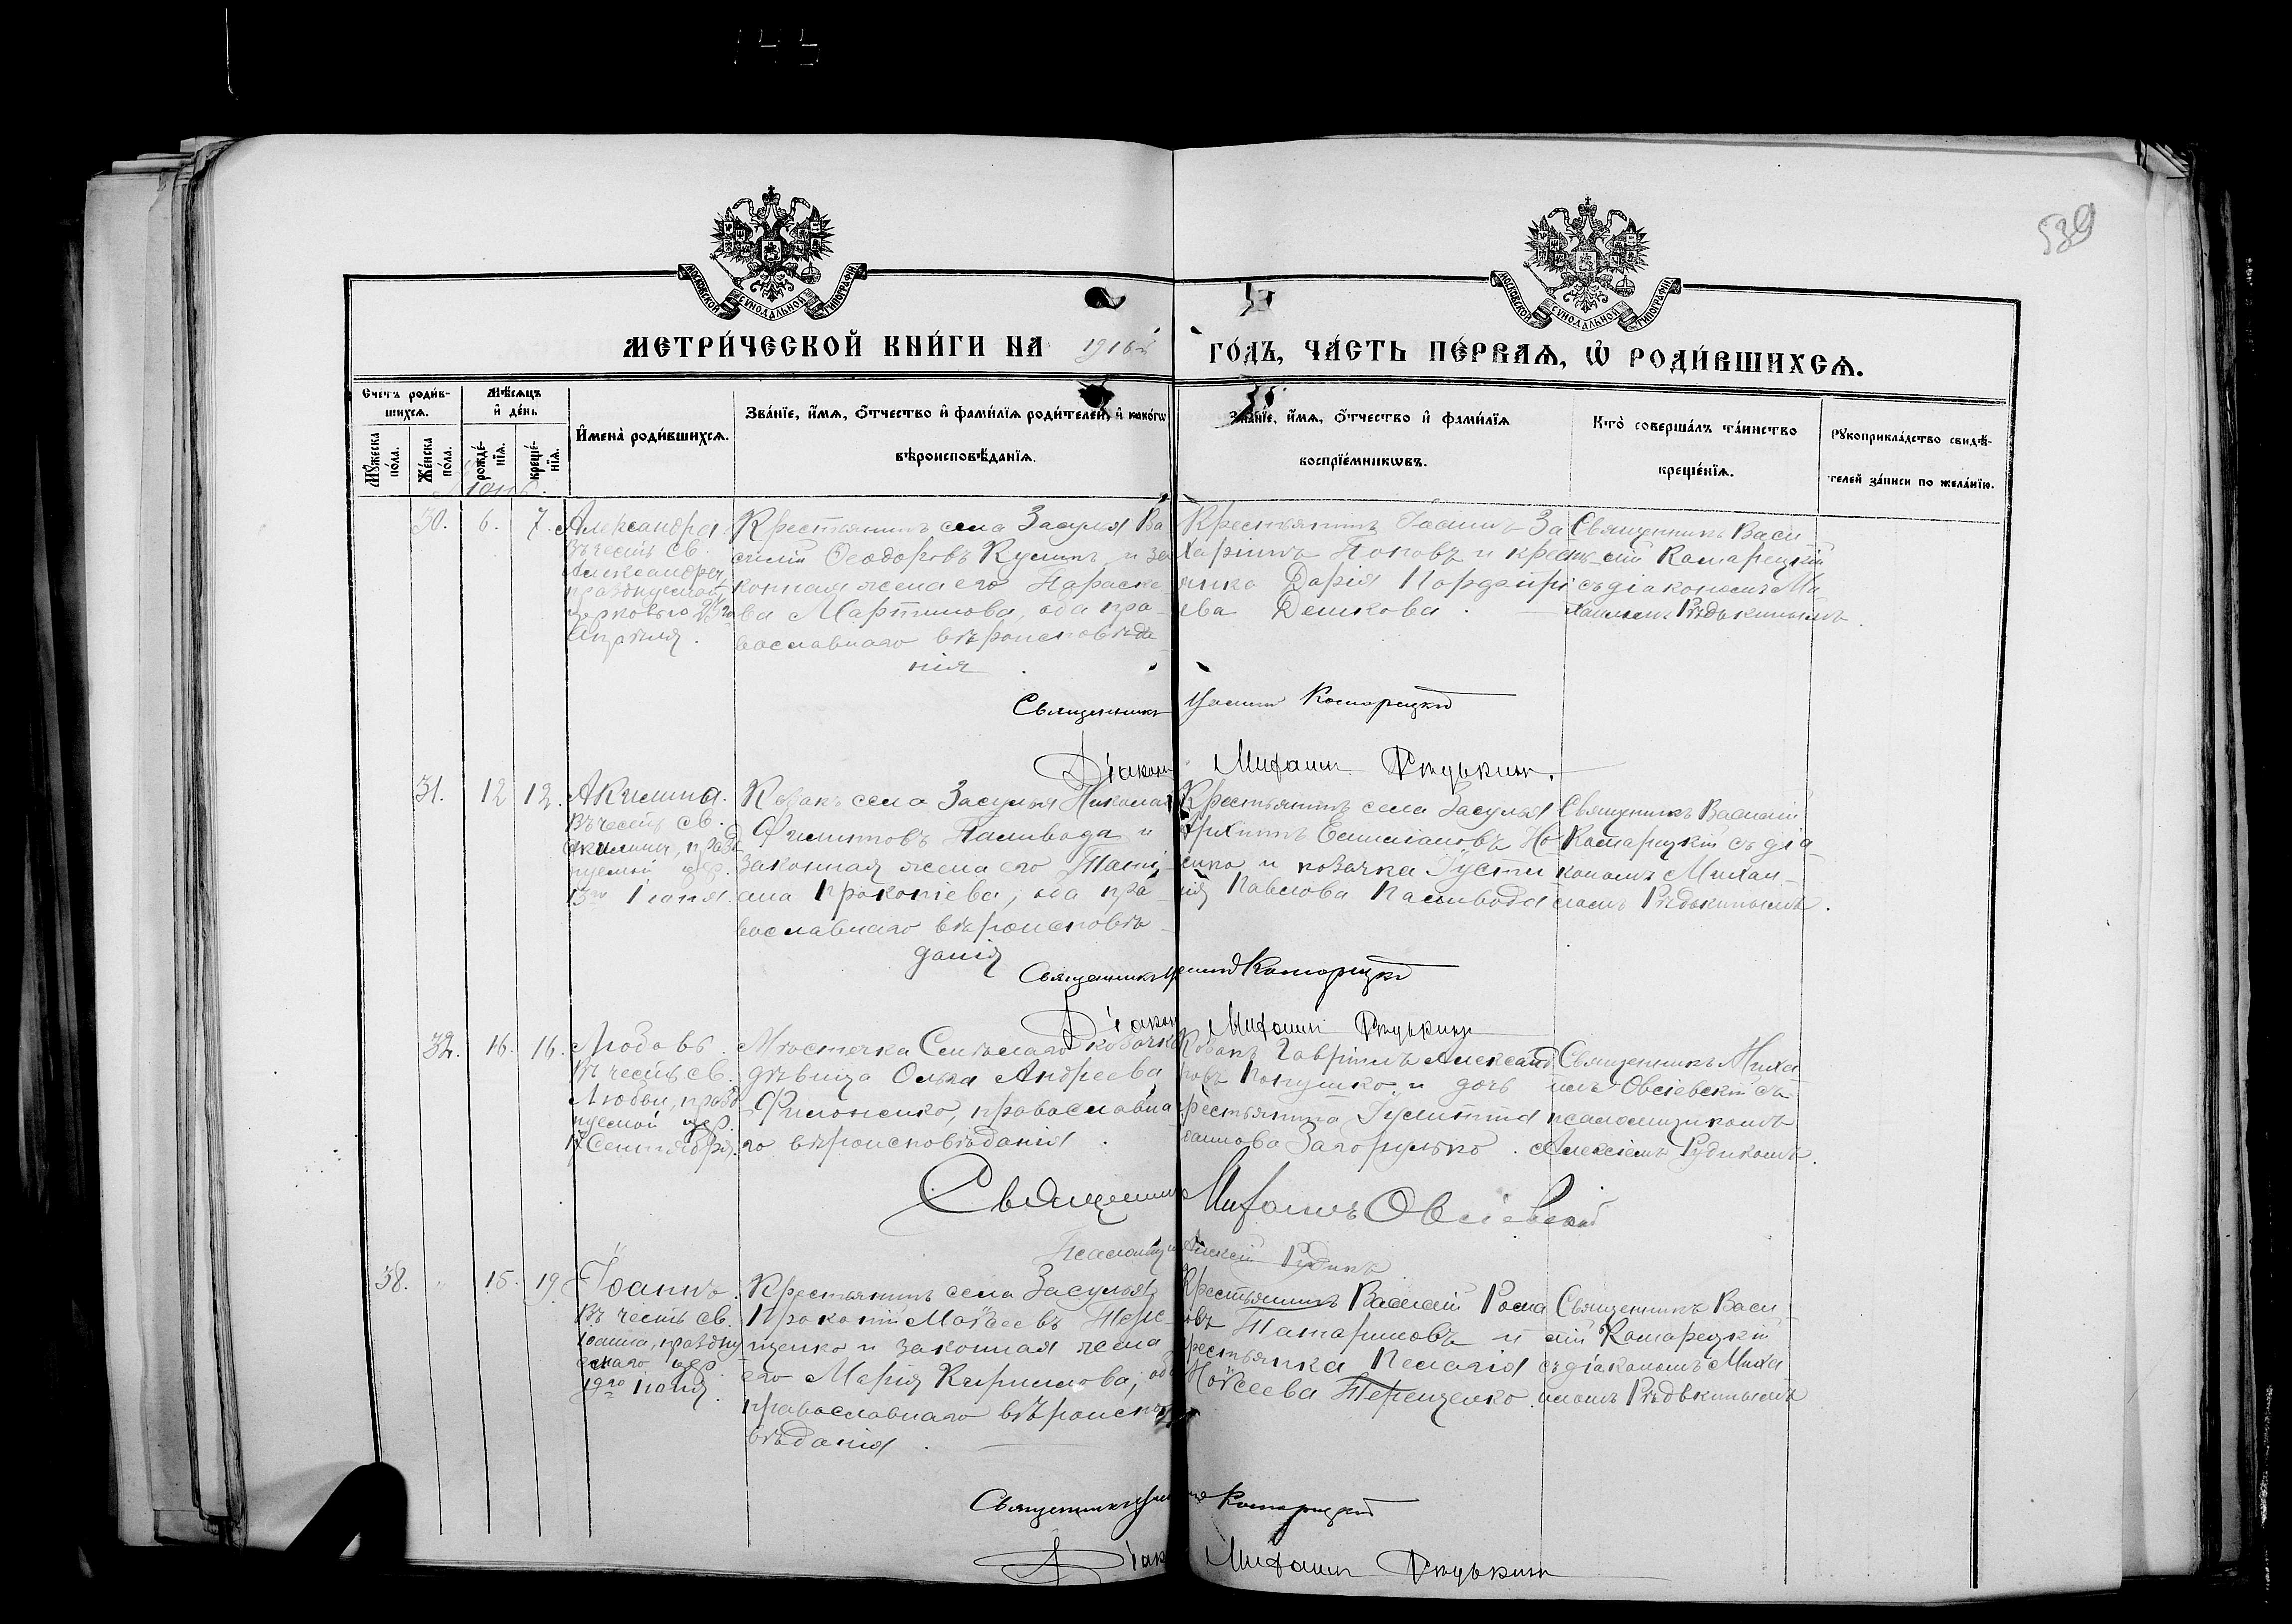 539
МОСКОВСКОЙ СѴНОДАЛЬНОЙ ТИПОГРАФІИ
МОСКОВСКОЙ СѴНОДАЛЬНОЙ ТИПОГРАФІИ
МЕТРИ́ЧЕСКОЙ КНИ́ГИ НА 1916й ГО́ДЪ, ЧА́СТЬ ПЕ́РВАѦ, Ѡ҆ РОДИ́ВШИХСѦ.
Счетъ роди́в-
шихсѧ.
Мѣ́сѧцъ
и҆ де́нь
Мꙋ́жеска
по́ла.
Же́нска
по́ла.
рожде́-
нїѧ.
креще́-
нїѧ.
И҆мена̀ роди́вшихсѧ.
Зва́нїе, и҆́мѧ, ѻ҆́тчество и҆ фами́лїѧ роди́телей, и҆ како́гѡ
вѣроисповѣ́данїѧ.
Зва́нїе, и҆́мѧ, ѻ҆́тчество и҆ фами́лїѧ
воспрїе́мникѡвъ.
Кто̀ соверша́лъ та́инство
креще́нїѧ.
Рꙋкоприкла́дство свидѣ́-
телей за́писи по жела́нїю.
Іюнь.
30. 6. 7.
Александра
Въ честь св.
Александры,
празднуемой
церковью 23го
Апрѣля.
Крестьянинъ села Засулья Ва
силій Ѳеодоровъ и за
конная жена его Параске
ва Мартинова, оба пра-
вославнаго вѣроисповѣда
нія
Крестьянинъ Іоаннъ За
харіинъ Поповъ и крест
янка Дарія Порфирі
ева Дешкова.
Священникъ Васи
лій Комарецкій
съ діакономъ Ми
хаиломъ Рѣдькинымъ.
Священникъ Комарецкій
Діаконъ Михаилъ Рѣдькинъ.
31. 12 12.
Акилина.
Въ честь св.
Акилины, празд
нуемой цер.
13го Іюня.
Козакъ села Засулья Николай
Филиповъ Паливода и
законная жена его Таті-
ана Прокопіева, оба пра-
вославнаго вѣроисповѣ-
данія
Крестьянинъ села Засулья
Емиліановъ Но-
енко и козачка Іусти
нія Павлова Паливода
Священникъ Василій
Комарецкій съ діа-
кономъ Михаи-
ломъ Рѣдькинымъ.
Священникъ Комарецкій
Діаконъ Михаилъ Рѣдькинъ
32. 16. 16.
Любовь.
Въ честь св.
Любви, празд
нуемой цер.
17 Сентября.
Мѣстечка козачка
дѣвица Ольга Андреева
Филоненко, православна
го вѣроисповѣданія.
Козакъ Гавріилъ Александ
ровъ и дочь
крестьянина Іустина
Загорулько.
Священникъ Миха
илъ Овсіевскій съ
псаломщикомъ
Алексіемъ Рудикомъ.
Священникъ Михаилъ Овсіевскій
Псаломщикъ Алексій Рудикъ
38. " 15. 19
Іоаннъ.
Въ честь св.
Іоанна, праздну
емаго цер.
19го Іюня.
Крестьянинъ села Засулья
Прокопій Моѵсеевъ Тере-
щенко и законная жена
его Марія Кириллова, оба
православнаго вѣроиспо
вѣданія.
Крестьянинъ Василій Рома
новъ Татариновъ и
крестьянка Пелагія
Моѵсеева Терещенко.
Священникъ Васи
лій Комарецкій
съ діакономъ Миха
иломъ Рѣдькинымъ
Священникъ Комарецкій
Діаконъ Михаилъ Рѣдькинъ